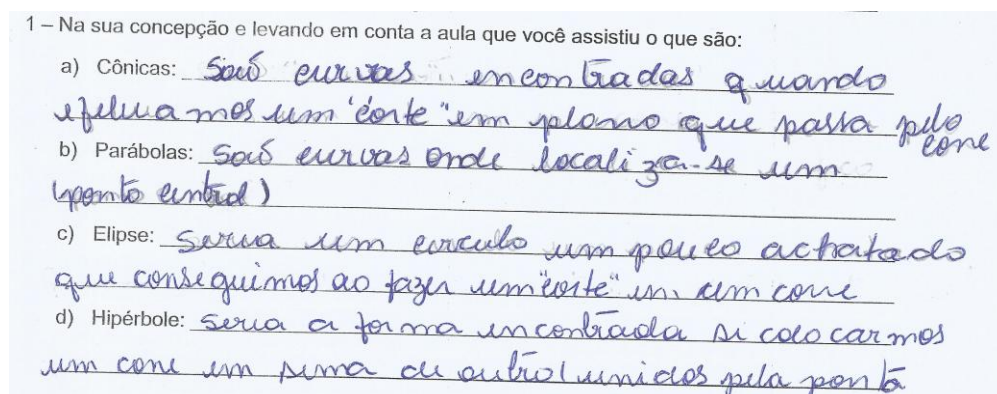 1 – Na sua concepção e levando em conta a aula que você assistiu o que são:
a) Cônicas: São curvas encontradas quando
efetuamos um "corte" em plano que passa pelo
cone
b) Parábolas: São curvas onde localiza-se um
(ponto central)
c) Elipse: Seria um circulo um pouco achatado
que conseguimos ao fazer um "corte" em um cone
d) Hipérbole: Seria a forma encontrada si colocarmos
um cone em sima de outro (unidos pela ponta